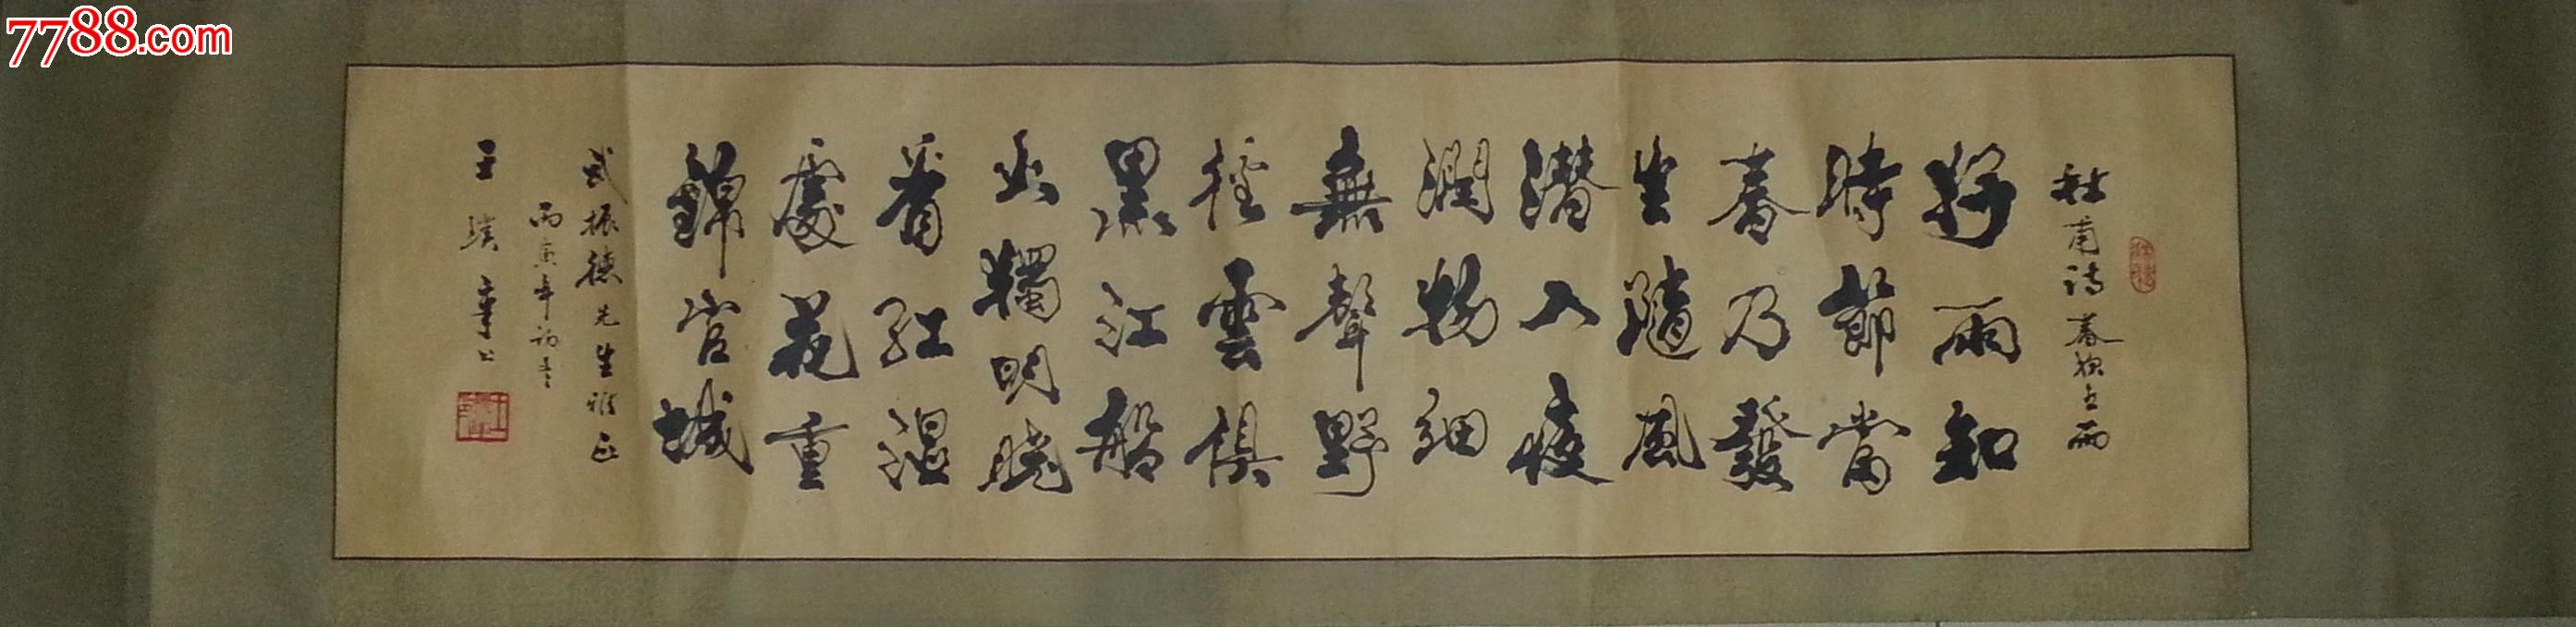 7788.com
杜甫詩春夜喜雨
好雨知
時節當
春乃發
生隨風
潛入夜
潤物細
無聲野
徑雲俱
黑江船
火獨明曉
看紅湿
處花重
錦官城
武振德先生雅正
丙寅年初冬
王章